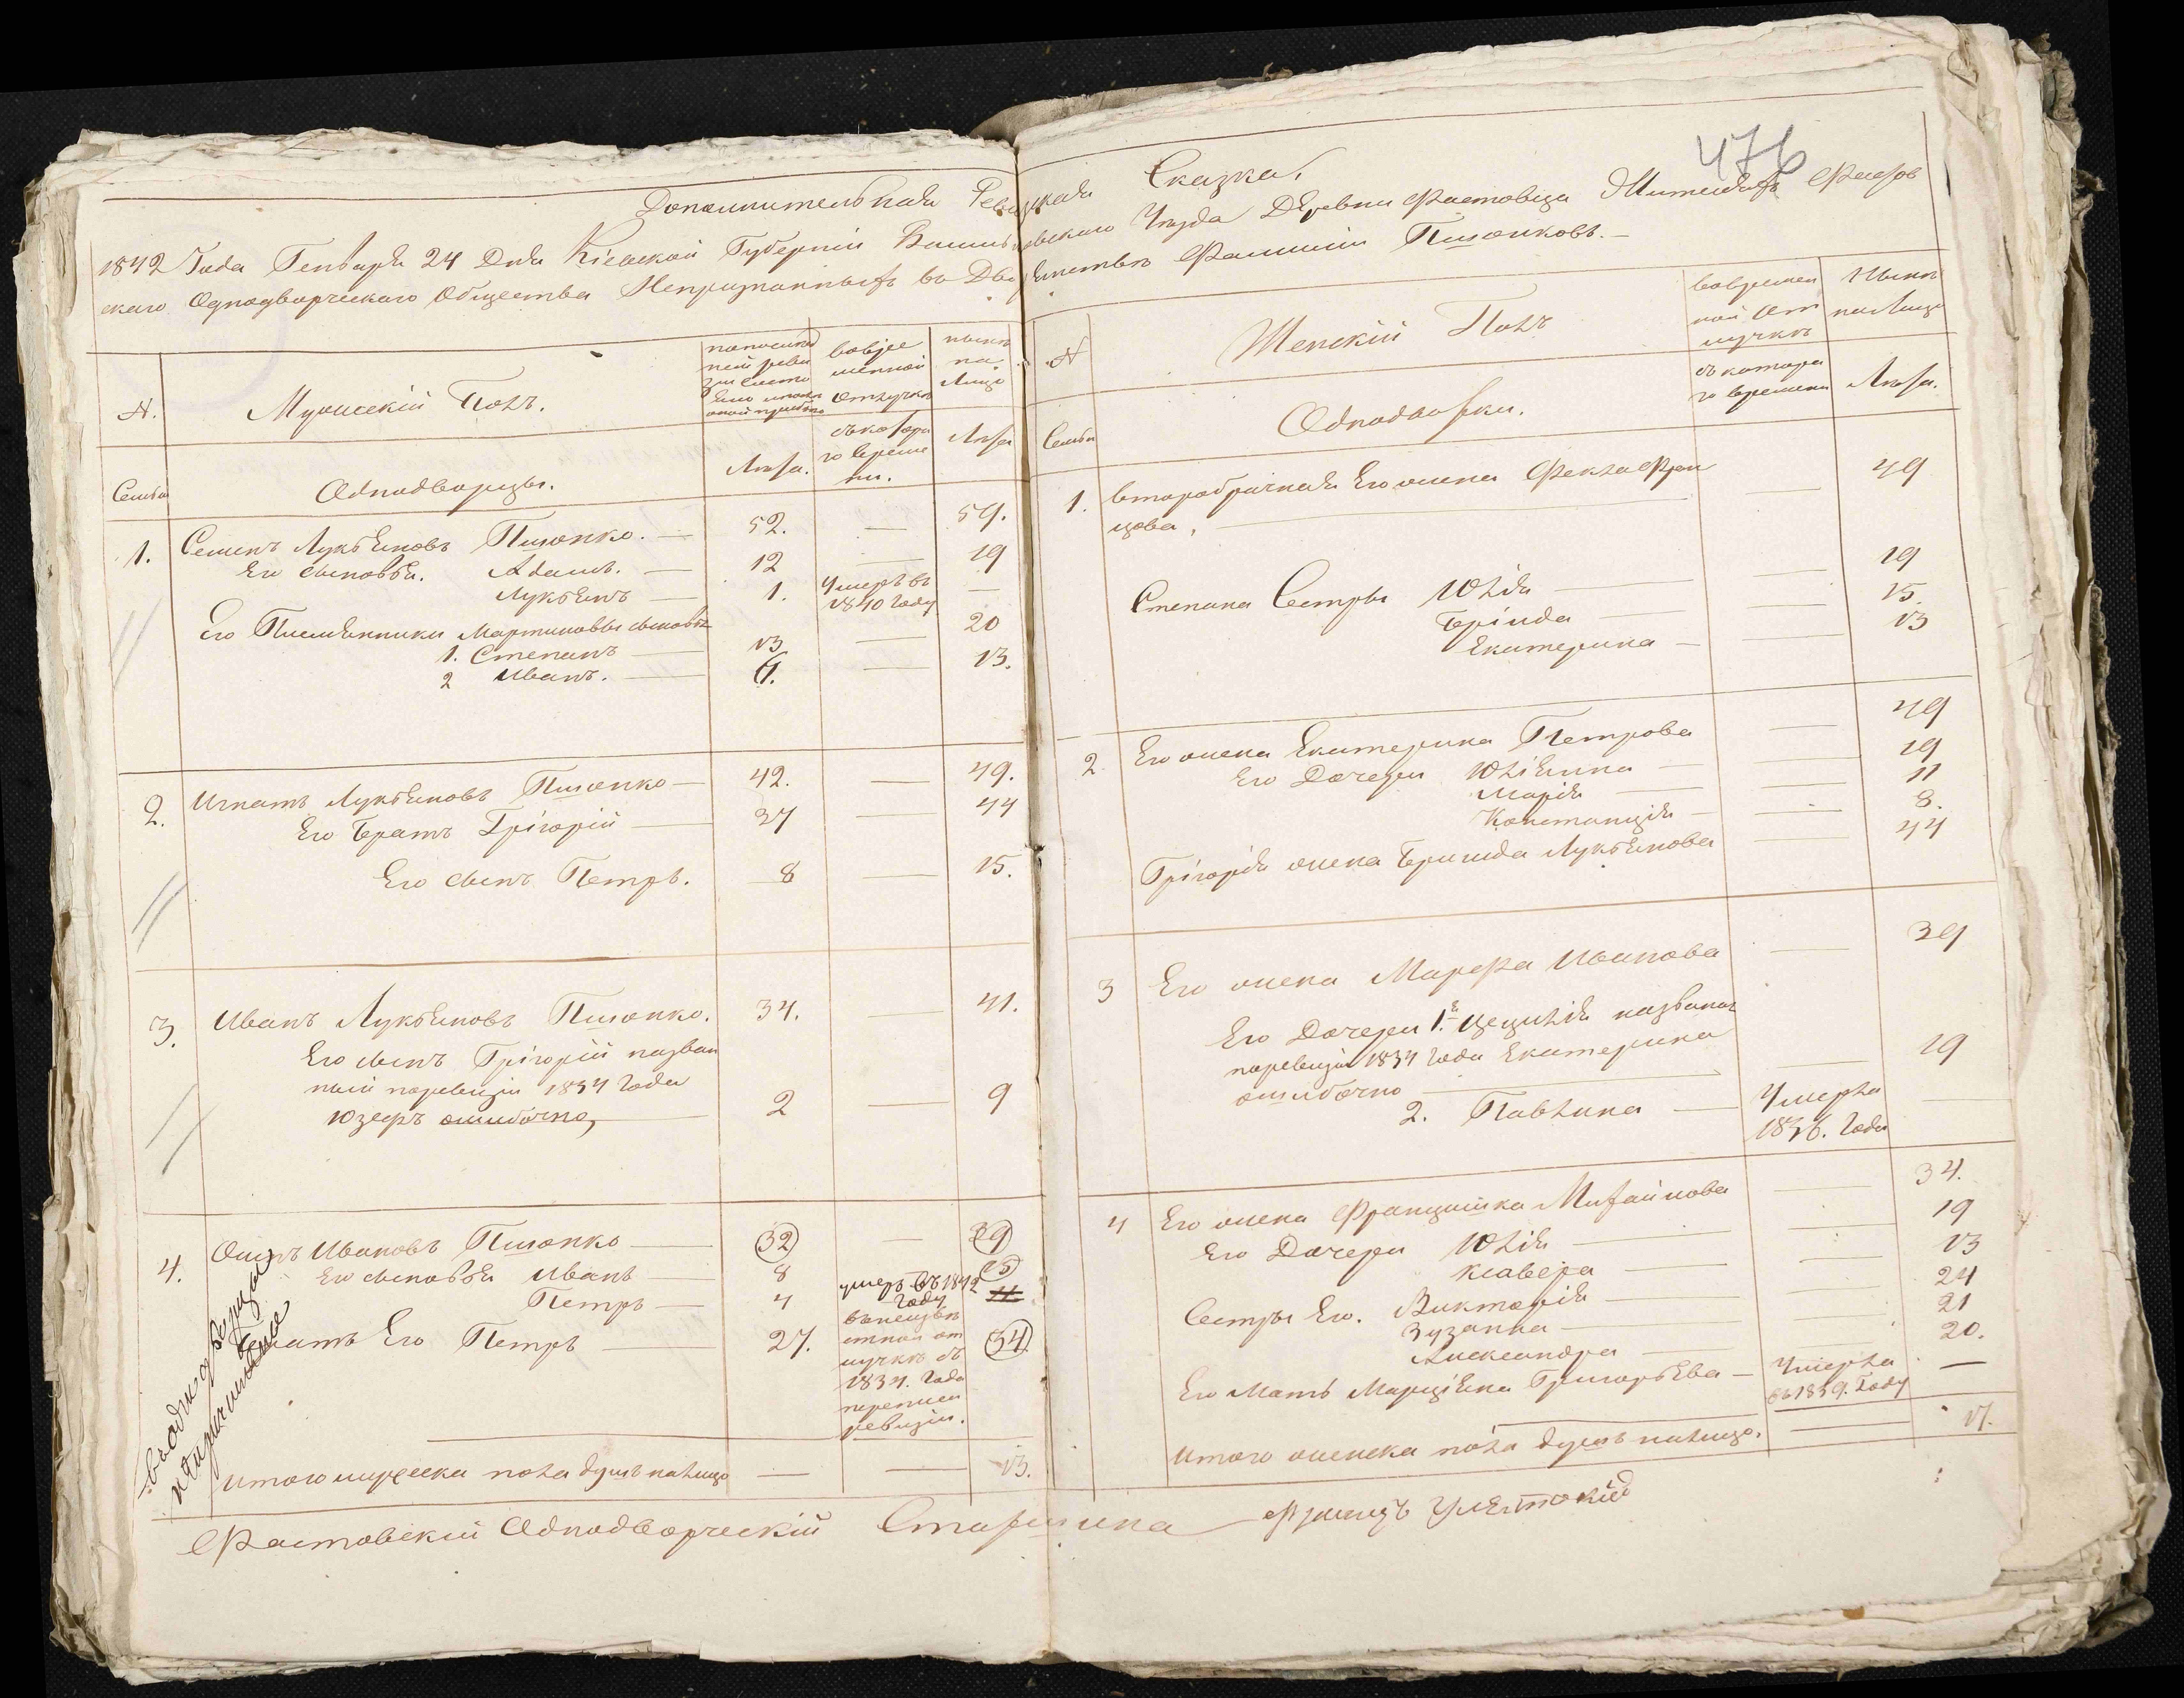 476
Дополнительная Ревизская Сказка,
1842 Года Генваря 24 Дня Кіевской Губерніи Васильковского Уезда Деревни Фастовца Жителях Фастов
скаго Однодворческаго Общества Непризнанных въ Дворянстве Фамиліи Пизонковъ.
N. Мужескій Полъ.
Семьи Однодворцы.
Лета.
съ котора
го време
ни.
Лета
1. Семенъ Лукьяновъ Пизонко. — 52. — 59.
Его сыновья. Адамъ. — 12 — 19
Лукьянъ — 1. Умеръ въ 1840 Году —
Его Племянники Мартиновы сыновья
1. Степанъ — 13 — 20
2 Иванъ. — 6. — 13.
2. Игнатъ Лукьяновъ Пизонко — 42. — 49.
Его братъ Грігорій — 37 — 44
Его сынъ Петръ. 8 — 15.
3. Иванъ Лукьяновъ Пизонко. 34. — 41.
Его сынъ Грігорій назван
ный поревизіи 1834 Года
Юзефъ ошибочно, — 2 — 9
4. Осипъ Ивановъ Пизонко — 32 — 39
Его сыновья Иванъ — 8 15
Петръ — 4 умеръ въ 1842 Году 11
Братъ Его Петръ — 27. 34.
въ неизвъ
стной от
лучкъ съ
1834. Года
ревизіи.
Итого мужеска пола душъ налицо — — 13.
N Женскій Полъ
вовремен
ной От
лучкъ
Нынъ
налицо
Семьи Однодворки.
съ котора
го времени
Лета.
1. второбрачная Его жена Фекла Фран
цова, — 49
Степана Сестры Юлія — — 19
Бригида — — 15.
Екатерина — — 13
2 Его жена Екатерина Петрова — 49
Его Дочери Юліянна — — 19
Марія — — 11
Констанція — — 8.
Грігорія жена Бригида Лукьянова — 44
3 Его жена Марфа Иванова — 39
Его Дочери 1.я Цецилія названа
поревизіи 1834 Года Екатерина
ошибочно — — 19
2. Павлина — Умерла 1836. Года —
4 Его жена Францишка Михайлова — 34.
Его Дочери Юлія — — 19
Ксавера — — 13
Сестры Его. Викторія — — 24
Зузанна — — 21
Александра — — 20.
Его Мать Марціянна Григорьева — Умерла въ 1839. Году —
Итого женска пола душъ налицо. — 17.
Фастовскій Однодворческій Старшина Францъ